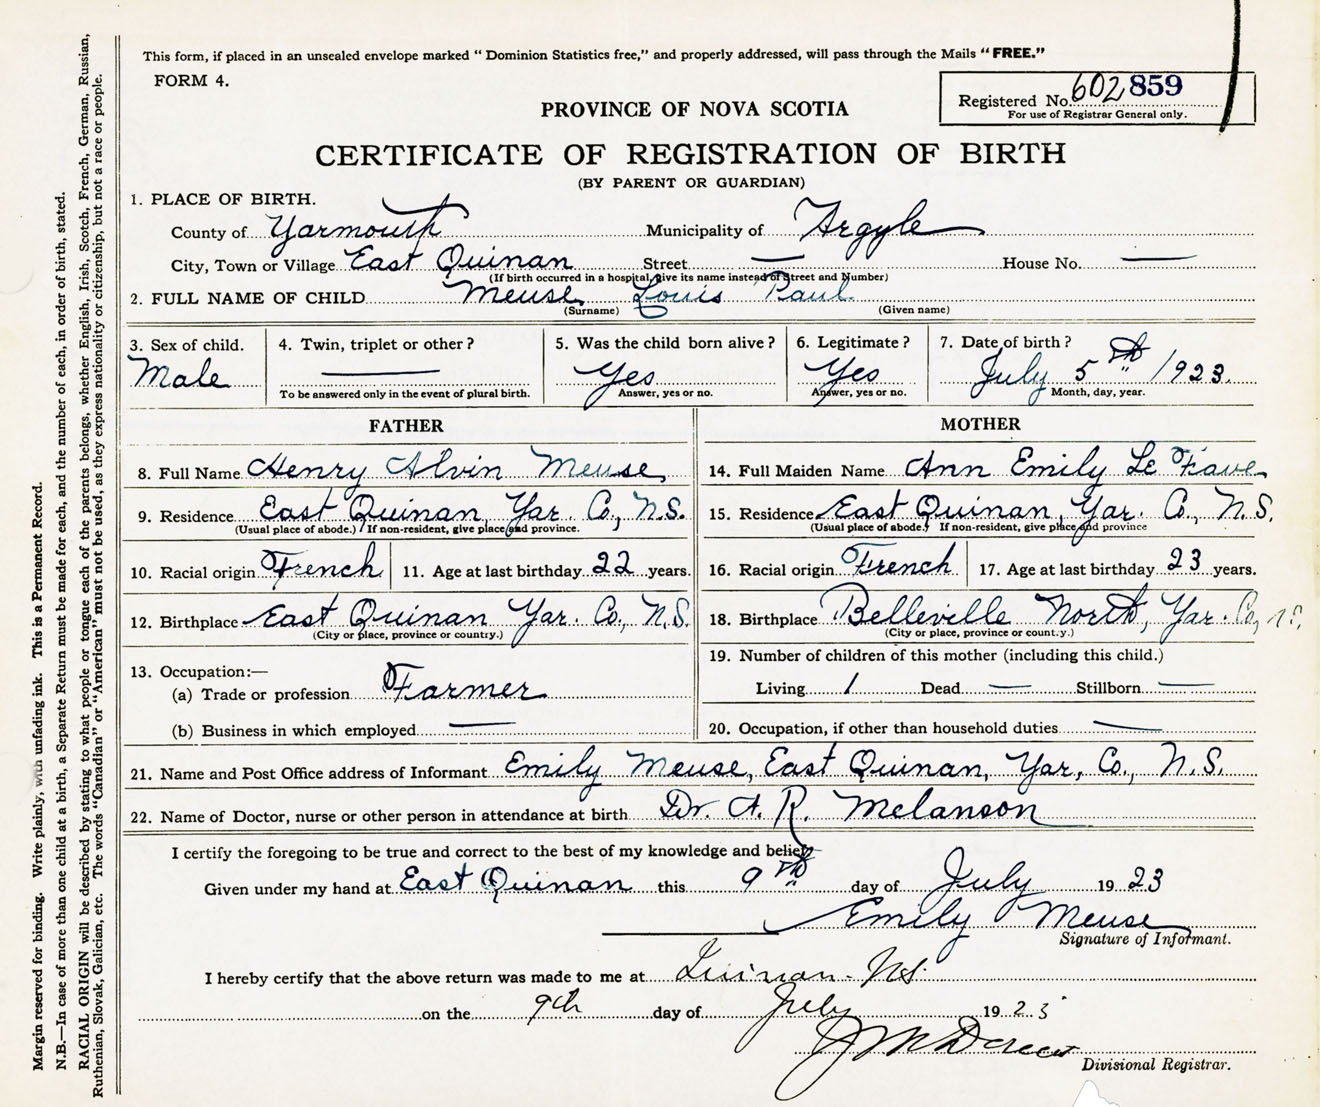 This form, if placed in an unsealed envelope marked “Dominion Statistics free,” and properly addressed, will pass through the Mails “FREE.”
FORM 4.
Registered No. 602859
For use of Registrar General only.
PROVINCE OF NOVA SCOTIA
CERTIFICATE OF REGISTRATION OF BIRTH
(BY PARENT OR GUARDIAN)
1. PLACE OF BIRTH.
County of Yarmouth Municipality of Argyle
City, Town or Village East Quinan Street — House No. —
(If birth occurred in a hospital, give its name instead of Street and Number)
2. FULL NAME OF CHILD Meuse Louis Paul
(Surname) (Given name)
3. Sex of child. 4. Twin, triplet or other? 5. Was the child born alive? 6. Legitimate? 7. Date of birth?
Male — Yes Yes July 5th 1923.
To be answered only in the event of plural birth. Answer, yes or no. Answer, yes or no. Month, day, year.
FATHER MOTHER
8. Full Name Henry Alvin Meuse 14. Full Maiden Name Ann Emily Le Fave
9. Residence East Quinan, Yar. Co., N.S. 15. Residence East Quinan, Yar. Co., N.S.
(Usual place of abode.) If non-resident, give place and province. (Usual place of abode.) If non-resident, give place and province
10. Racial origin French 11. Age at last birthday 22 years. 16. Racial origin French 17. Age at last birthday 23 years.
12. Birthplace East Quinan Yar. Co., N.S. 18. Birthplace Belleville North, Yar. Co, N.S.
(City or place, province or country.) (City or place, province or country.)
13. Occupation:— 19. Number of children of this mother (including this child.)
(a) Trade or profession Farmer Living 1 Dead — Stillborn —
(b) Business in which employed — 20. Occupation, if other than household duties —
21. Name and Post Office address of Informant Emily Meuse, East Quinan, Yar, Co., N.S.
22. Name of Doctor, nurse or other person in attendance at birth Dr. A. R. Melanson
I certify the foregoing to be true and correct to the best of my knowledge and belief.
Given under my hand at East Quinan this 9th day of July 1923
Emily Meuse
Signature of Informant.
I hereby certify that the above return was made to me at Quinan - NS.
on the 9th day of July 1923
Divisional Registrar.
Margin reserved for binding. Write plainly, with unfading ink. This is a Permanent Record.
N.B.—In case of more than one child at a birth, a Separate Return must be made for each, and the number of each, in order of birth, stated.
RACIAL ORIGIN will be described by stating to what people or tongue each of the parents belongs, whether English, Irish, Scotch, French, German, Russian,
Ruthenian, Slovak, Galician, etc. The words “Canadian” or “American” must not be used, as they express nationality or citizenship, but not a race or people.